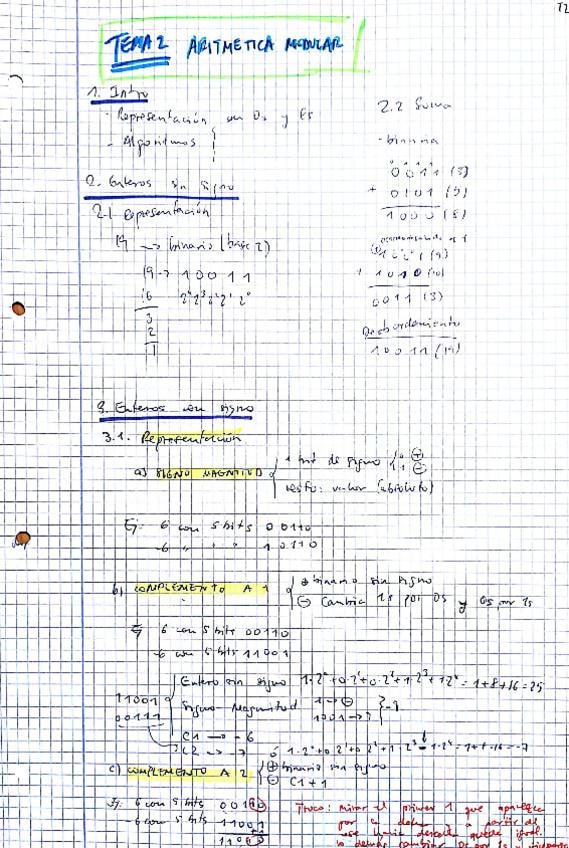 TEMA 2 ARITMETICA MODULAR
1. Intro
- Representación en 0s y 1s
- Algoritmos
2. Enteros sin signo
2.1 Representación
19 → binario (base 2)
19 → 1 0 0 1 1
16 2⁴ 2³ 2² 2¹ 2⁰
3
2
1
2.2 Suma
- binaria
0 0 1 1 (3)
+ 0 1 0 1 (5)
1 0 0 0 (8)
+ 1 0 1 0 (10)
0 0 1 1 (3)
Desbordamiento
1 0 0 1 1 (19)
3. Enteros con signo
3.1. Representación
a) SIGNO MAGNITUD
1 bit de signo 0: ⊕ 1: ⊖
resto: valor (absoluto)
Ej: 6 con 5 bits 0 0110
-6 " " " 1 0110
b) COMPLEMENTO A 1
⊕ binario sin signo
⊖ Cambia 1s por 0s y 0s por 1s
Ej 6 con 5 bits 00110
-6 con 5 bits 11001
11001
00111
Entero sin signo 1·2⁰+0·2¹+0·2²+1·2³+1·2⁴ = 1+8+16=25
Signo-Magnitud 1→⊖ 1001→9 } -9
C1 → -6
C2 → -7
c) COMPLEMENTO A 2
⊕ binario sin signo
⊖ C1+1
Ej: 6 con 5 bits 00110
-6 con 5 bits 11001
Truco: mirar el primer 1 que aparezca
por la